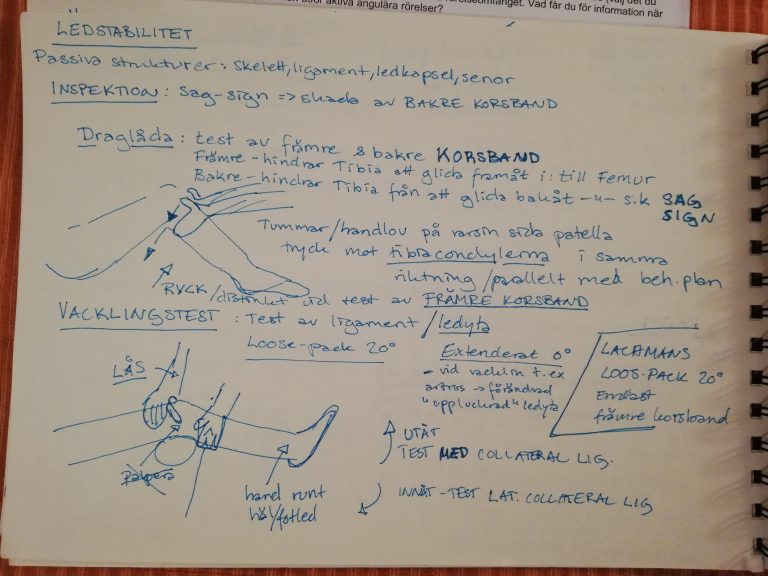 rörelseomfånget. Vad får du för information när
utför aktiva angulära rörelser?
LEDSTABILITET
Passiva strukturer: Skelett, ligament, ledkapsel, senor
INSPEKTION: Sag-sign => skada av BAKRE KORSBAND
Draglåda: test av främre & bakre KORSBAND
Främre - hindrar Tibia att glida framåt i: till Femur
Bakre - hindrar Tibia från att glida bakåt -"- s.k SAG
SIGN
Tummar/handlov på varsin sida patella
tryck mot tibiacondylerna i samma
riktning/parallelt med beh.plan
RYCK/distinkt vid test av FRÄMRE KORSBAND
VACKLINGSTEST: Test av ligament/ledyta
Loose-pack 20°
Extenderat 0°
- vid vacklin t.ex
artros → förändrad
"uppluckrad" ledyta
LACHMANS
LOOS-PACK 20°
Endast
främre korsband
LÅS
palpera
hand runt
häl/fotled
UTÅT
TEST MED COLLATERAL LIG.
INNÅT - TEST LAT. COLLATERAL LIG